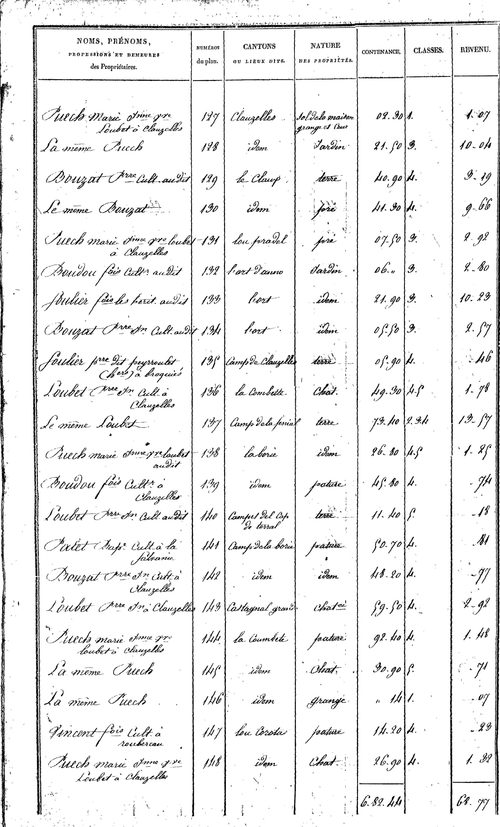 NOMS, PRÉNOMS, PROFESSIONS ET DEMEURES des Propriétaires. NUMÉROS du plan. CANTONS OU LIEUX DITS. NATURE DES PROPRIÉTÉS. CONTENANCE. CLASSES. REVENU.
Puech marie anne vve 127 Clauzelles Sol de la maison 02.30 1. 1.07
Loubet à Clauzelles grange et cour
La même Puech 128 idem Jardin 21.50 3. 10.04
Bouzat Pre Cult. audit 129 le Claux terre 40.90 4. 3.29
Le même Bouzat 130 idem pré 41.30 4. 9.66
Puech marie anne vve loubet 131 lou pradel pré 07.50 3. 2.92
à Clauzelles
Boudou fois Cultr audit 132 l'ort d'anno Jardin 06." 3. 2.80
Soulier fois les hérit. audit 133 l'ort idem 21.90 3. 10.23
Bouzat Pre Jn Cult. audit 134 l'ort idem 05.50 3. 2.57
Soulier pre dit 135 Camp de Clauzelles terre 05.90 4. .46
à broquiès
Loubet Pre Jn Cult. à 136 la Combette Chat. 49.30 4.5 1.78
Clauzelles
Le même Loubet 137 Camp de la terre 73.40 2.3.4 13.57
Puech marie anne vve loubet 138 la borie idem 26.80 4.5 1.25
audit
Boudou fois Cultr à 139 idem pature 45.80 4. .74
Clauzelles
Loubet Pre Jn Cult. audit 140 Camp del Cap terre 11.40 5. .18
de terral
Cult. à la 141 Camp de la borie pature 50.70 4. .81
Bouzat Pre Jn Cult. à 142 idem idem 48.20 4. .77
Clauzelles
Loubet Pre Jn à Clauzelles 143 Castagnal grand Chat. 59.50 4. 2.92
Puech marie anne vve 144 la Coumbete pature 92.40 4. 1.48
loubet à Clauzelles
La même Puech 145 idem Chat. 30.90 5. .71
La même Puech 146 idem grange " 14 1. .07
Vincent fois Cult. à 147 lou pature 14.20 4. .23
Puech marie anne vve 148 idem Chat. 26.90 4. 1.32
Loubet à Clauzelles
6.82.44 68.77